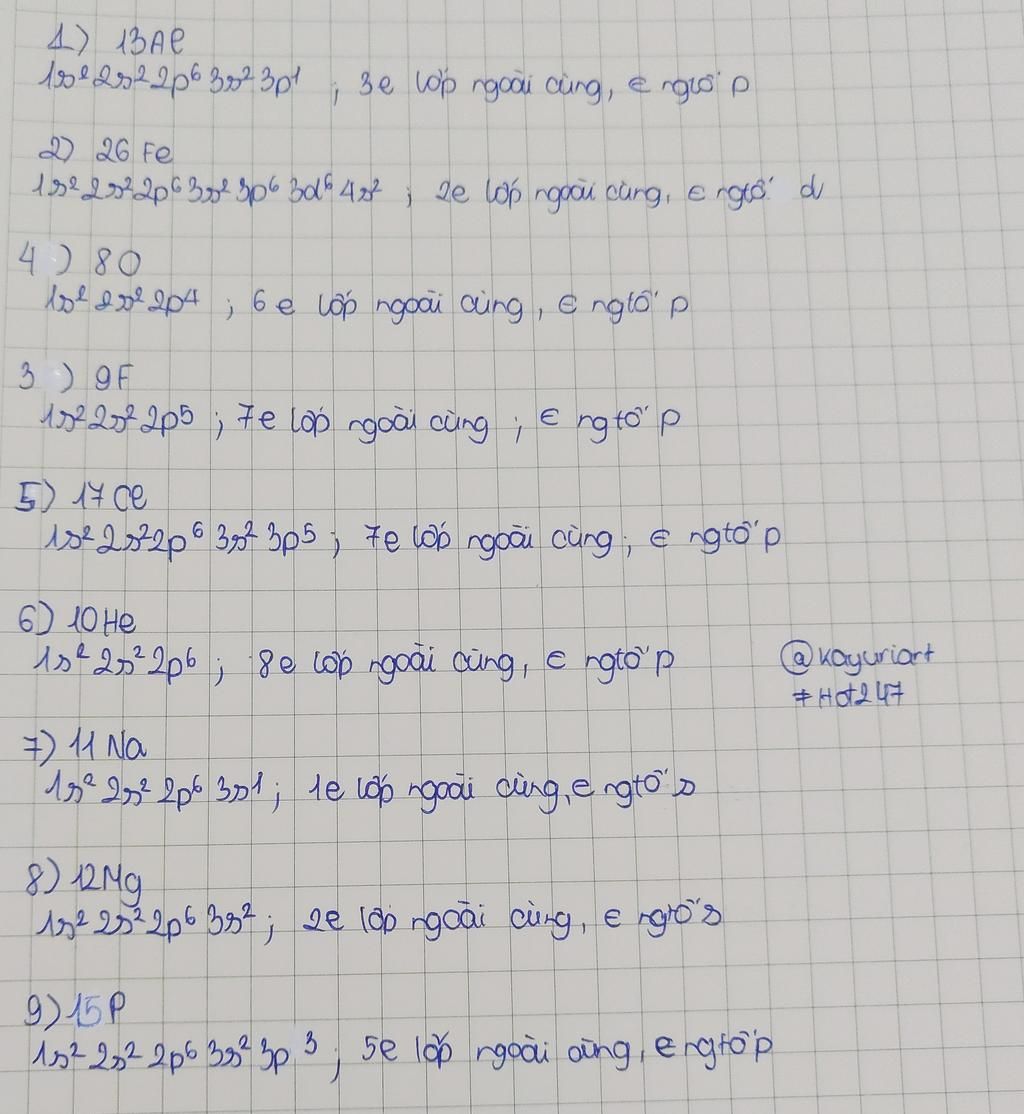 1) 13Al
1s² 2s² 2p⁶ 3s² 3p¹ ; 3e lớp ngoài cùng, ∈ ngtố p
2) 26 Fe
1s² 2s² 2p⁶ 3s² 3p⁶ 3d⁶ 4s² ; 2e lớp ngoài cùng, ∈ ngtố d
4) 8O
1s² 2s² 2p⁴ ; 6e lớp ngoài cùng, ∈ ngtố p
3) 9F
1s² 2s² 2p⁵ ; 7e lớp ngoài cùng ; ∈ ngtố p
5) 17Cl
1s² 2s² 2p⁶ 3s² 3p⁵ ; 7e lớp ngoài cùng ; ∈ ngtố p
6) 10He
1s² 2s² 2p⁶ ; 8e lớp ngoài cùng, ∈ ngtố p
@kayuriart
#Hot247
7) 11Na
1s² 2s² 2p⁶ 3s¹ ; 1e lớp ngoài cùng, ∈ ngtố s
8) 12Mg
1s² 2s² 2p⁶ 3s² ; 2e lớp ngoài cùng, ∈ ngtố s
9) 15P
1s² 2s² 2p⁶ 3s² 3p³ ; 5e lớp ngoài cùng, ∈ ngtố p